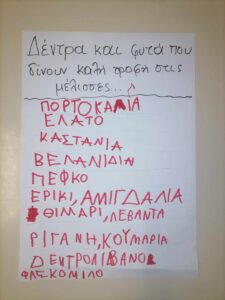 Δέντρα και φυτά που
δίνουν καλή τροφή στις
μέλισσες...
ΠΟΡΤΟΚΑΛΙΑ
ΕΛΑΤΟ
ΚΑΣΤΑΝΙΑ
ΒΕΛΑΝΙΔΙΑ
ΠΕΦΚΟ
ΕΡΙΚΙ, ΑΜΙΓΔΑΛΙΑ
ΘΙΜΑΡΙ, ΛΕΒΑΝΤΑ
ΡΙΓΑΝΗ, ΚΟΥΜΑΡΙΑ
ΔΕΝΤΡΟΛΙΒΑΝΟ
ΦΑΣΚΟΜΙΛΟ